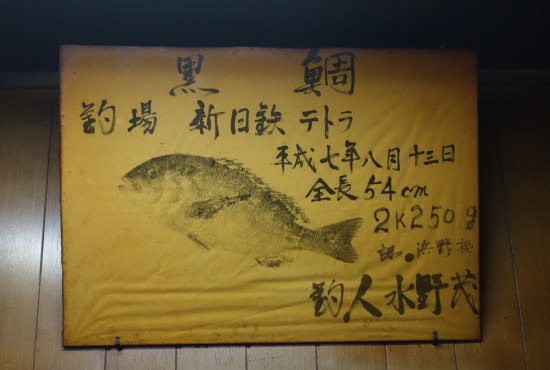 黒鯛
釣場 新日鉄 テトラ
平成七年八月十三日
全長54cm
2K250g
浜野
釣人 水野茂